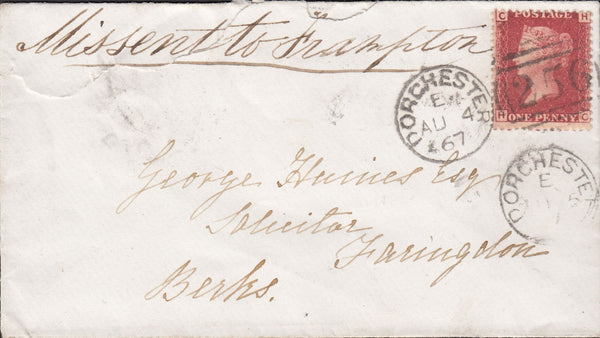 Missent to Frampton
C POSTAGE H
H ONE PENNY C
DORCHESTER
E
AU 4
67
DORCHESTER
E
George Haines Esq
Solicitor
Faringdon
Berks.